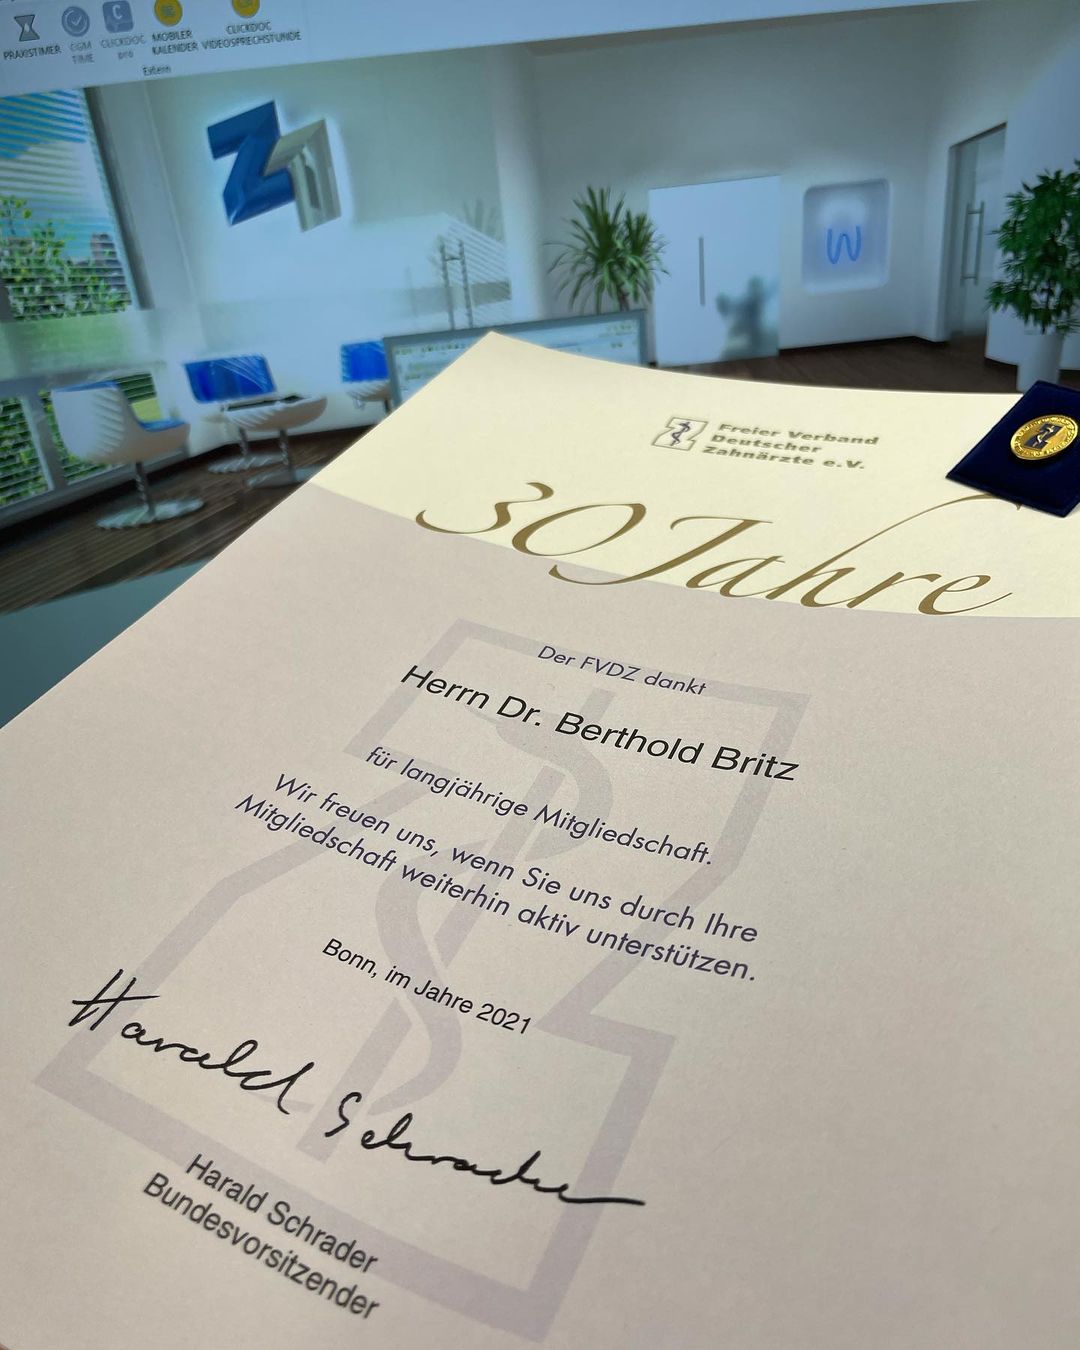 PRAXISTIMER
CGM
TIME
CLICKDOC
pro
MOBILER
KALENDER
CLICKDOC
VIDEOSPRECHSTUNDE
Extern
Z1
Freier Verband
Deutscher
Zahnärzte e.V.
30 Jahre
Der FVDZ dankt
Herrn Dr. Berthold Britz
für langjährige Mitgliedschaft.
Wir freuen uns, wenn Sie uns durch Ihre
Mitgliedschaft weiterhin aktiv unterstützen.
Bonn, im Jahre 2021
Harald Schrader
Harald Schrader
Bundesvorsitzender